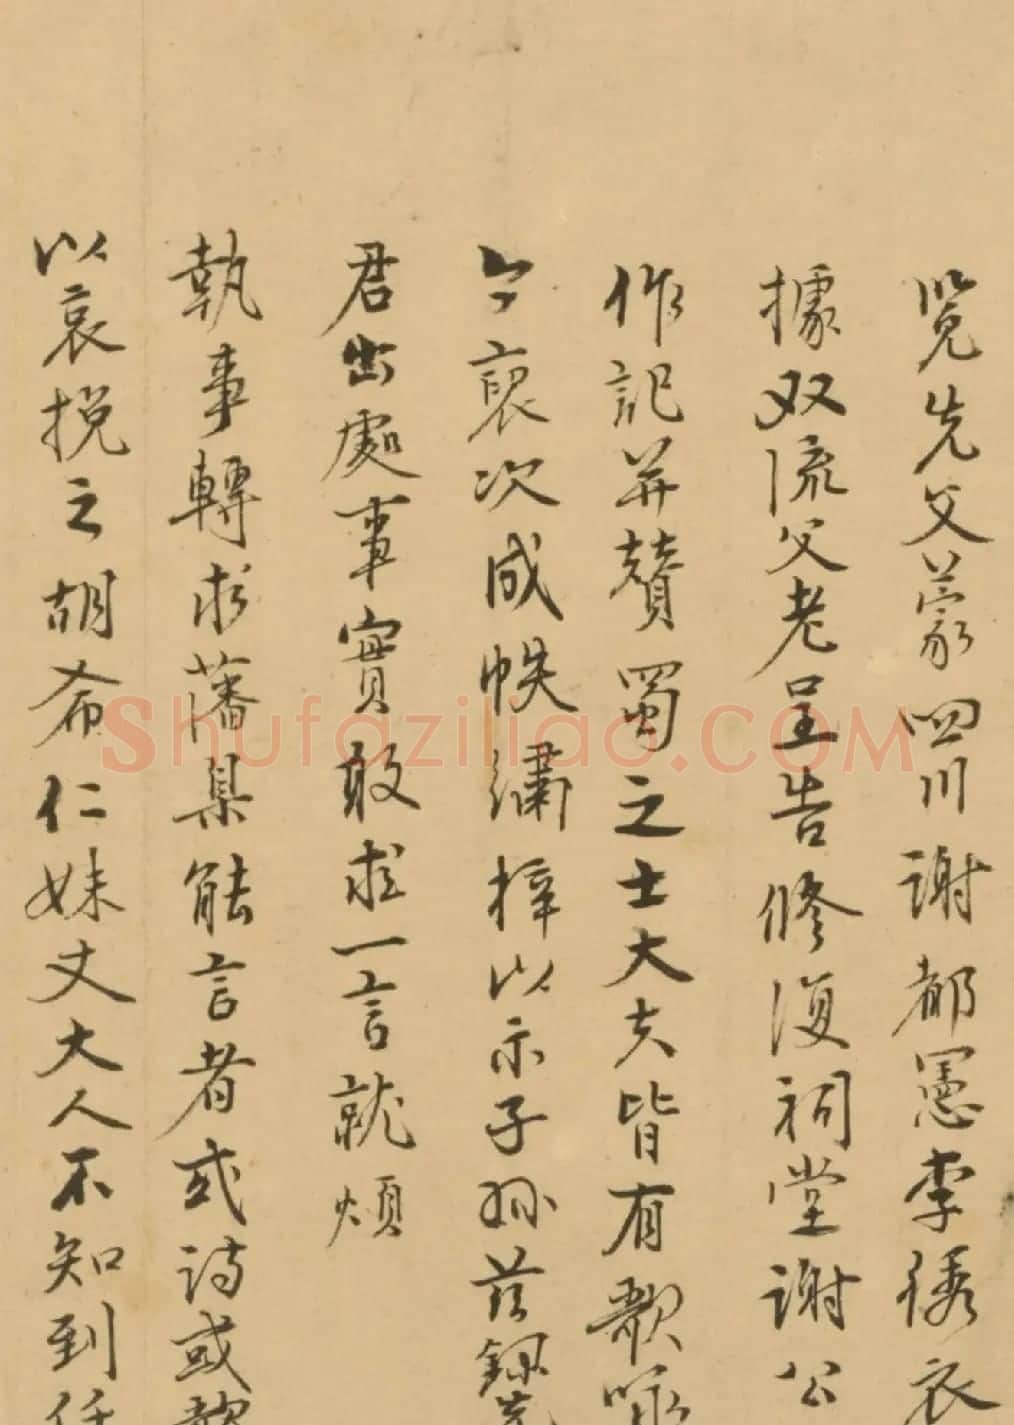 览先父蒙四川谢都宪李绣衣
據双流父老呈告修复祠堂谢公
作記并賛蜀之士大夫皆有歌咏
今裒次成帙繡梓以示子孙茲録先
君出處事實敢求一言就煩
執事轉求藩臬能言者或诗或歌
以哀挽之胡希仁妹丈大人不知到任
Shufaziliao.COM